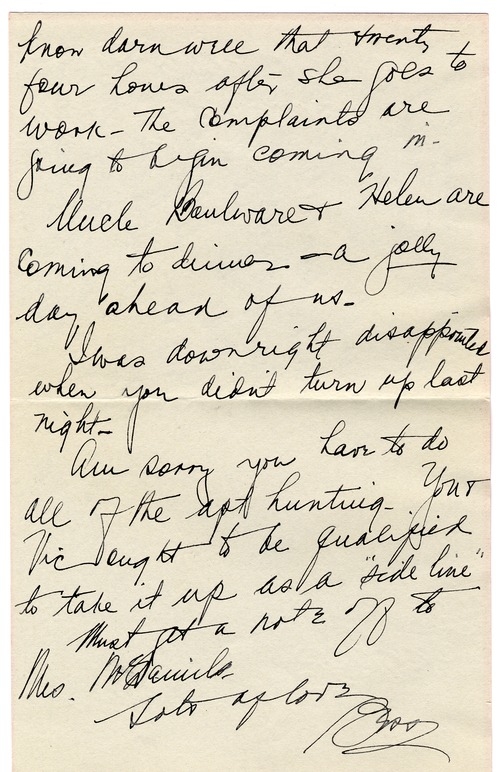 know darn well that twenty
four hours after she goes to
work - The complaints are
going to begin coming in -
Uncle Boulware & Helen are
coming to dinner - a jolly
day ahead of us -
I was downright disappointed
when you didn't turn up last
night -
Am sorry you have to do
all of the apt hunting - You &
Vic ought to be qualified
to take it up as a "side line"
Must get a note off to
Mrs. McDaniels
Lots of love